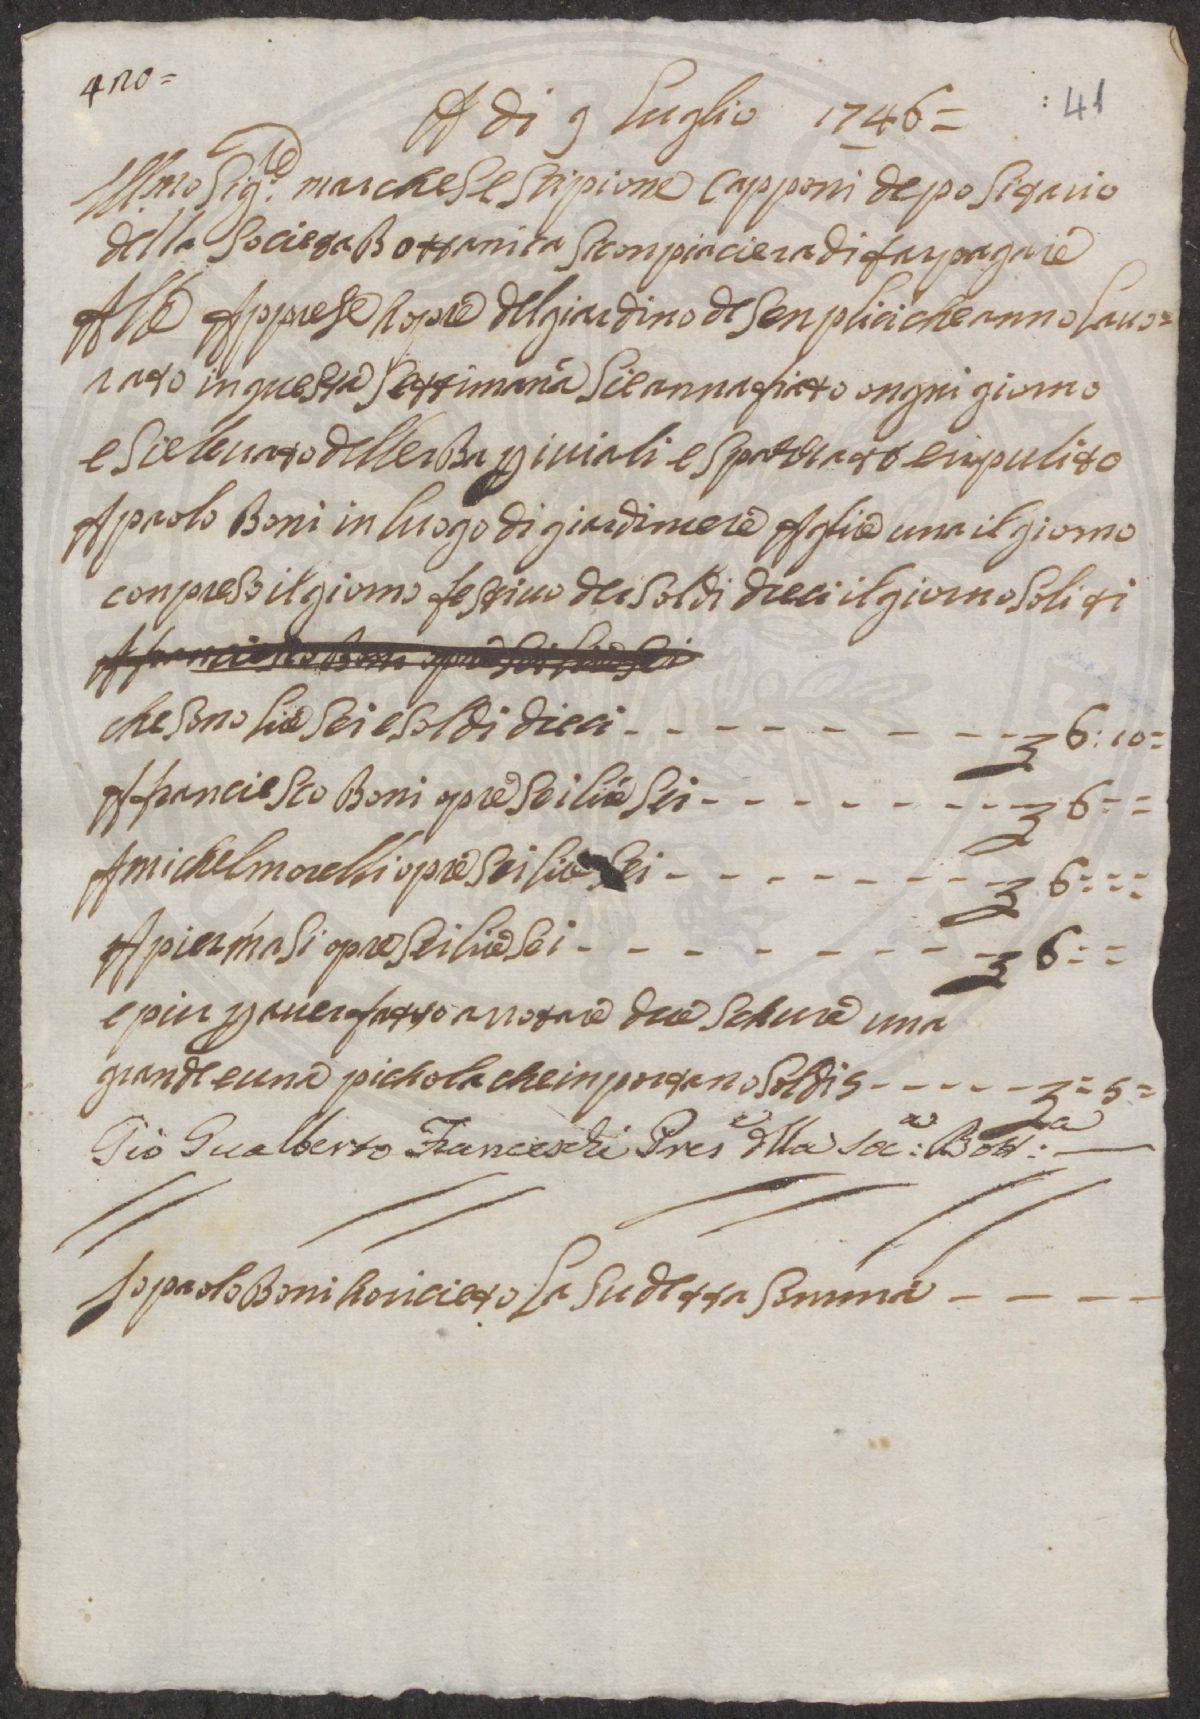 4 no= A di 9 Luglio 1746= :41
Ill.mo Sig.re marchese Scipione Capponi deposigario
della Societa Bottanica Sconpiaciera di far pagare
Alle Apprese hopre del giardino de Senplici che anno lavo=
rato in questa Settimana Sie annafiato ongni giorno
e Sie levato dellerba p i viali e Spazzato e ripulito
A paolo Boni in luogo di giardinere A glie una il giorno
conpreso il giorno festivo de Soldi dieci il giorno Soliti
A franciesco Boni opre Sei lire Sei
che Sono lire Sei e Soldi dieci - - - - - - - - £ 6:10=
A franciesco Boni opre Sei lire Sei - - - - - - - - £ 6==
A michel morelli opre Sei lire Sei - - - - - - - - £ 6:==
A pier masi opre Sei lire Sei - - - - - - - - £ 6:=
e piu p aver fatto arrotare due Schure una
grande e una pichola che inportano Soldi 5 - - - - - £ = 5=
Gio Gualberto Franceschi Pres.e della Soc:a Bott:a
Io paolo Boni ho ricieuto La Sudetta Somma - - - -